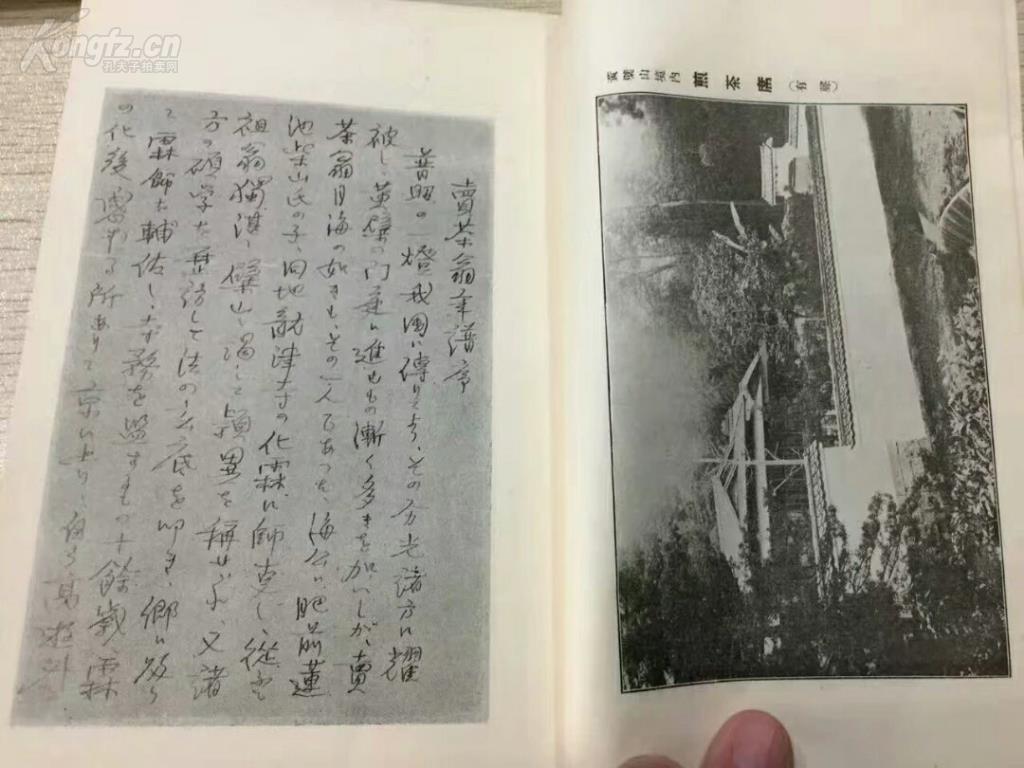 Kongfz.cn
孔夫子拍卖网
賣茶翁年譜序
普照の一燈我国に傳りてより、その方光諸方に耀
被し、黄檗の門庭に進むもの漸く多きを加へしが、賣
茶翁月海の如きも、その一人であつた、海公は肥前蓮
池 山氏の子、同地龍津寺の化霖に師事し、從て
祖翁獨湛に檗山に謁して穎異を称せられ、又諸
方の碩学を歴訪して法の玄底を叩き、郷に
て霖師を輔佐し、寺務を監するもの十餘歳霖
の化後 する所ありて京に上り、自ら高遊外
黄檗山境内 煎茶席 (有聲)